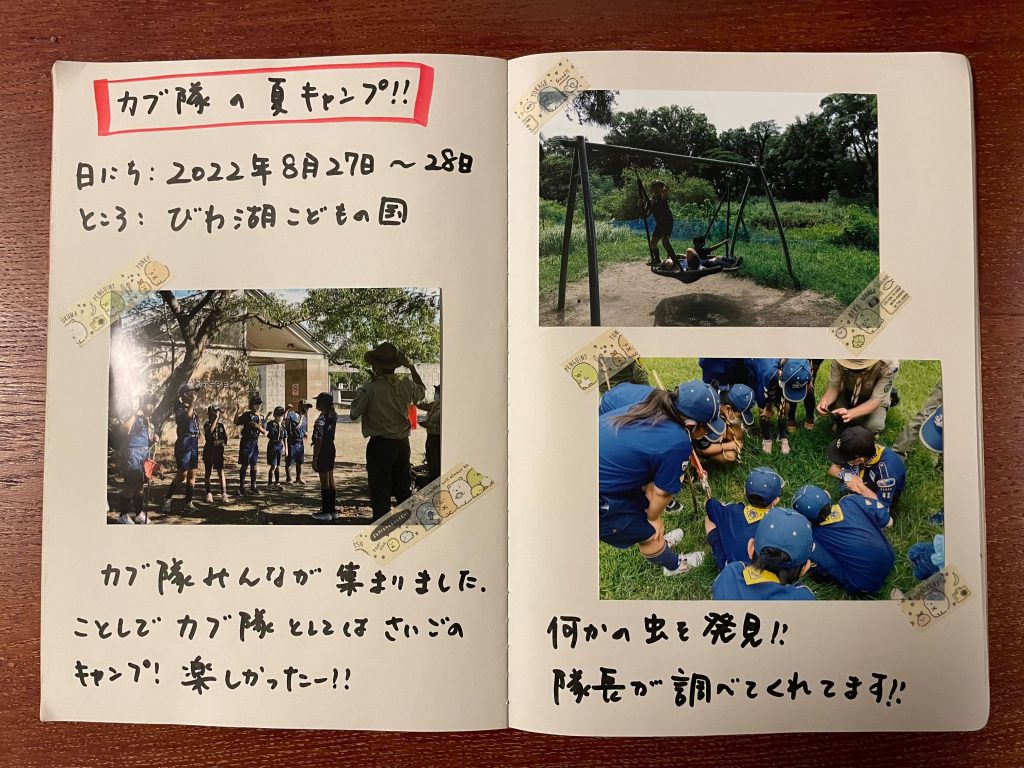 カブ隊の夏キャンプ!!
日にち:2022年8月27日～28日
ところ:びわ湖こどもの国
カブ隊みんなが集まりました.
ことしでカブ隊としてはさいごの
キャンプ!楽しかったー!!
何かの虫を発見!!
隊長が調べてくれてます!!
PENGUIN?